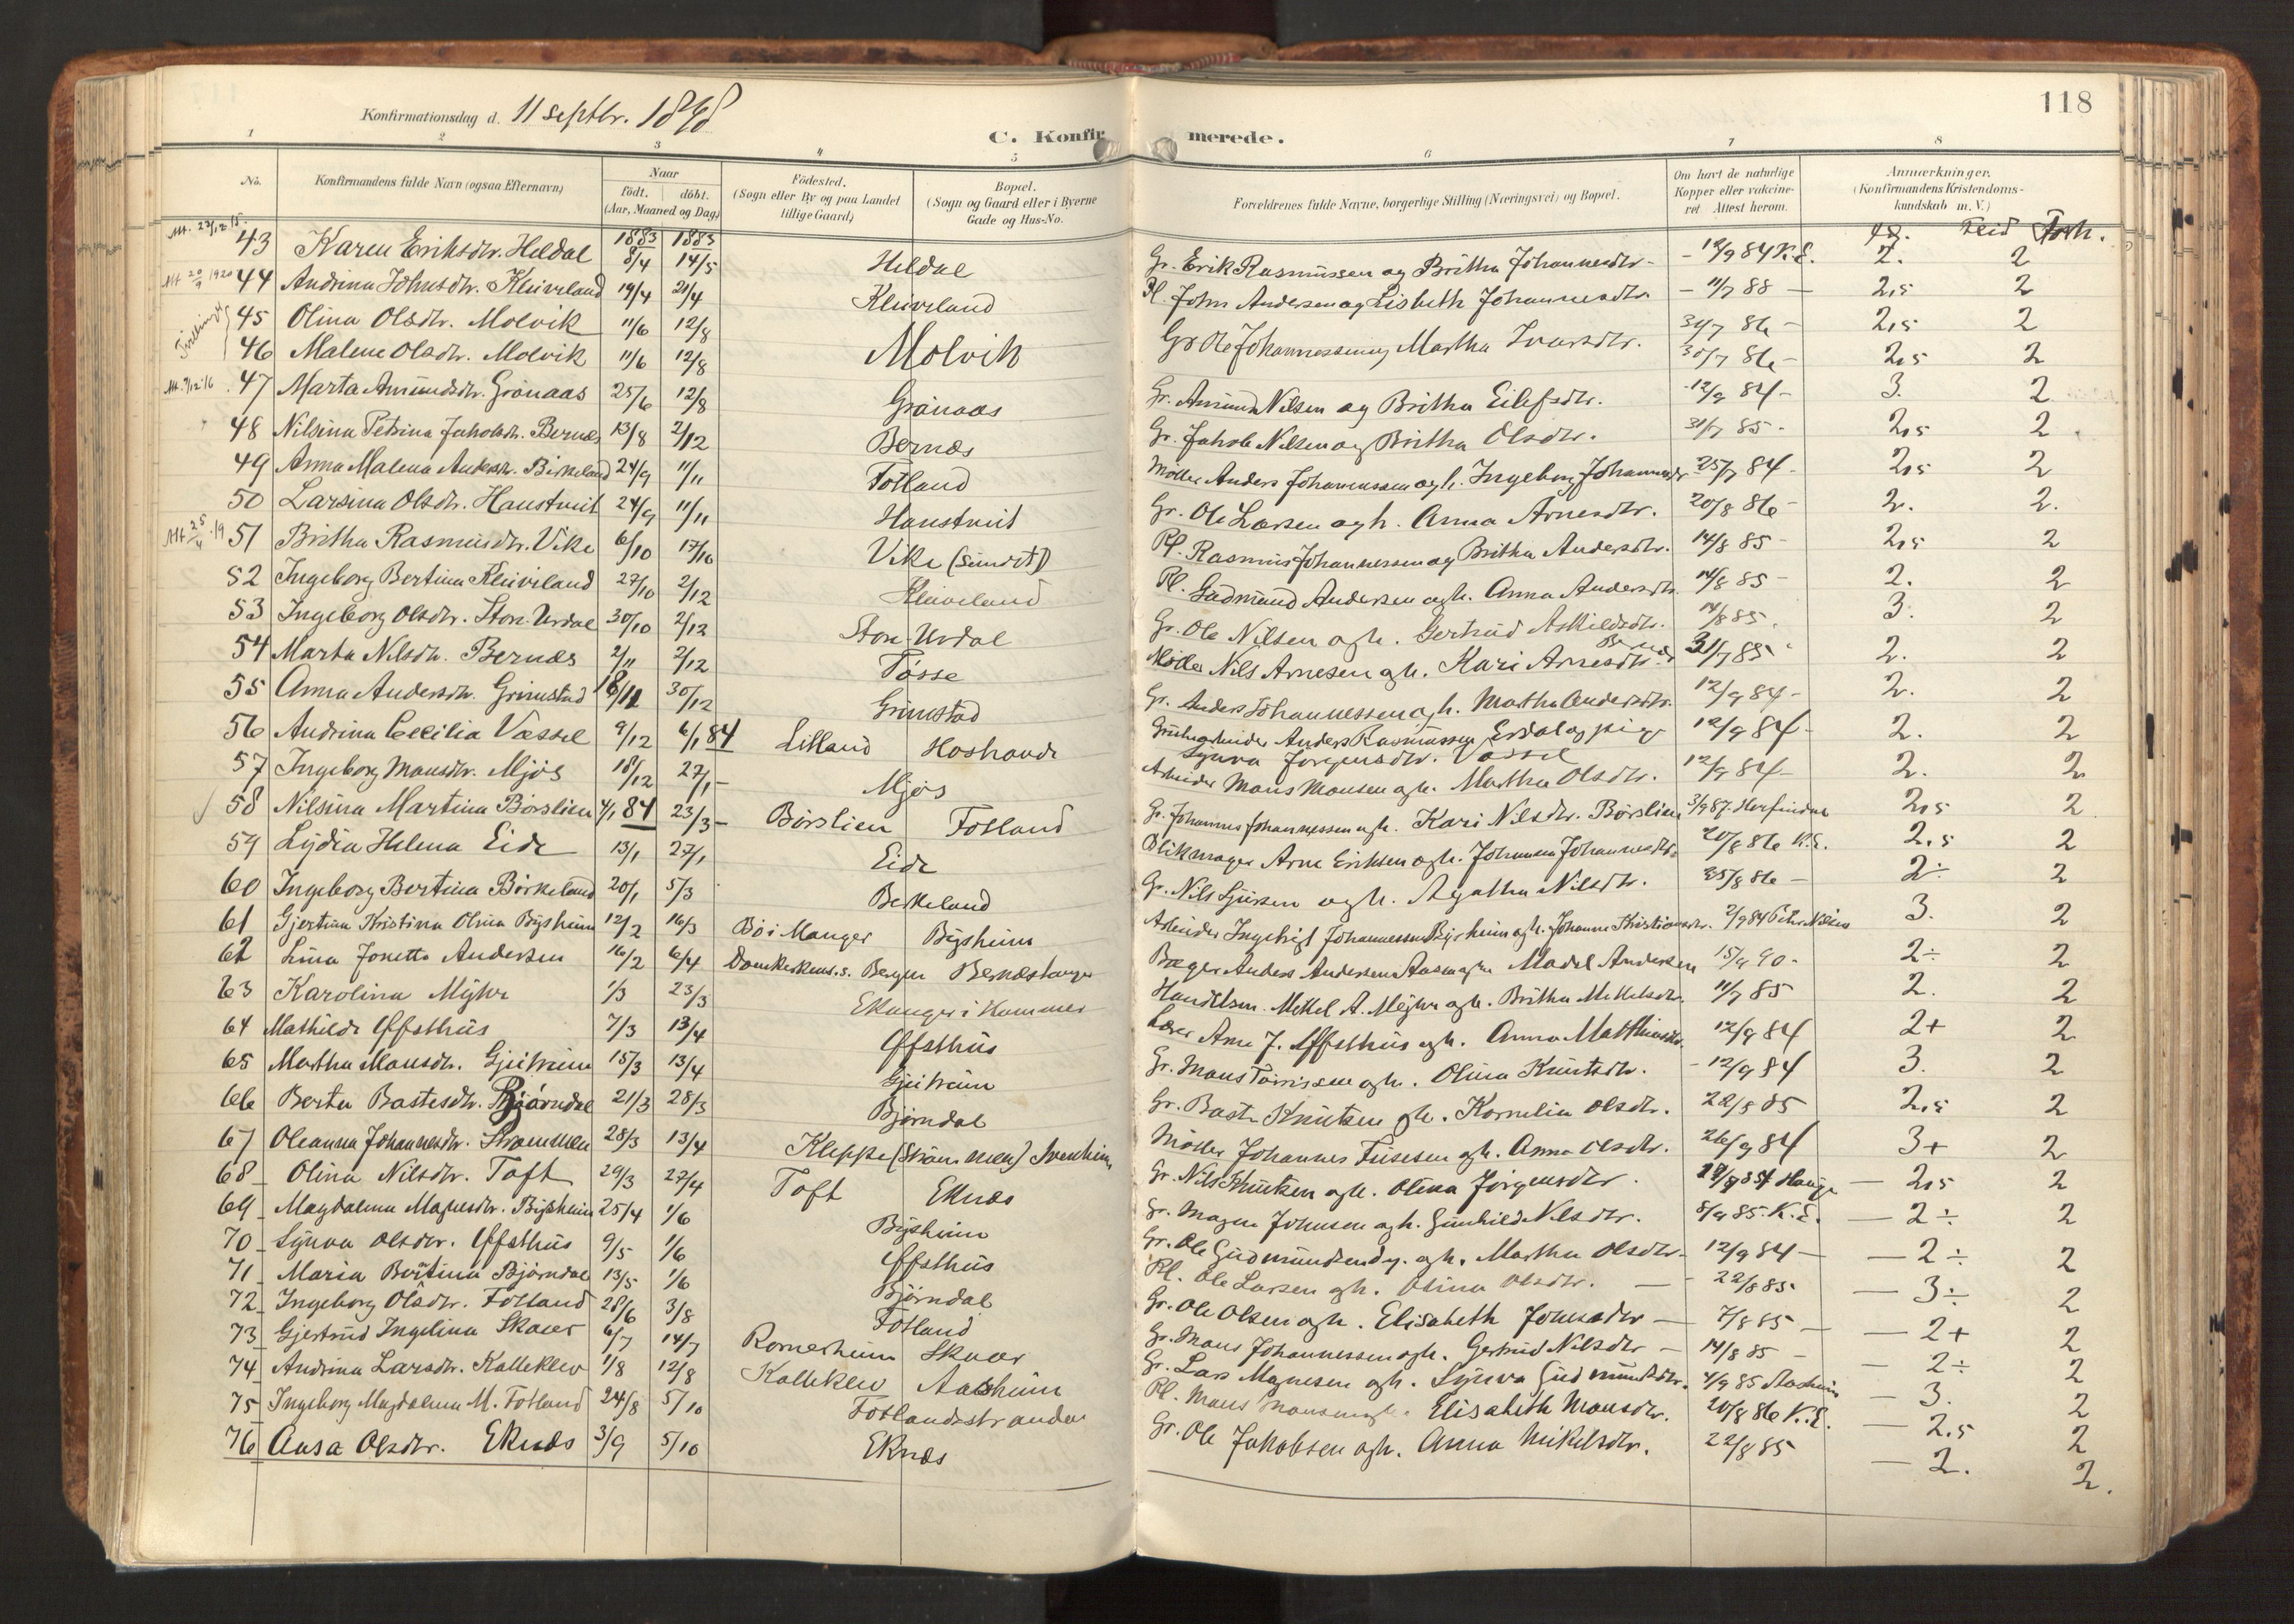 118
Konfirmationsdag d. 11 septbr. 1898
C. Konfirmerede.
1 2 3 4 5 6 7 8
No. Konfirmandens fulde Navn (ogsaa Efternavn) Naar født. døbt. (Aar, Maaned og Dag) Fødested. (Sogn eller By og paa Landet tillige Gaard) Bopæl. (Sogn og Gaard eller i Byerne Gade og Hus-No. Forældrenes fulde Navne, borgerlige Stilling (Næringsvei) og Bopæl. Om havt de naturlige Kopper eller vaccineret Attest herom. Anmærkninger. (Konfirmandens Kristendomskundskab m. V.)
Flid Forh.
43 Karen Eriksdtr. Heldal 1883 8/4 1883 14/5 Heldal Gr. Erik Rasmussen og Britha Johannesdtr. 12/9 84 K.E. 2. 2
44 Andrina Johnsdtr. Kleiveland 19/4 21/4 Kleiveland Pl. John Andersen og Lisbeth Johannesdtr. 11/7 88 2,5 2
Tvillinger
45 Olina Olsdtr. Molvik 11/6 12/8 Molvik Gr Ole Johannessen og Martha Ivarsdtr. 30/7 86 2,5 2
46 Malene Olsdtr. Molvik 11/6 12/8 30/7 86 2,5 2
47 Marta Amundsdtr. Grønaas 25/6 12/8 Grønaas Gr. Amund Nilsen og Britha Eilefsdtr. 12/9 84 3. 2
48 Nilsina Petrina Jakobsdtr. Bernæs 13/8 2/12 Bernæs Gr. Jakob Nilsen og Britha Olsdtr. 31/7 85 2,5 2
49 Anna Malena Andersdtr. Birkeland 24/9 11/11 Fotland Møller Anders Johannessen og h. Ingeborg Johannesdtr 25/7 84 2,5 2
50 Larsina Olsdtr. Haustveit 24/9 11/11 Haustveit Gr. Ole Larsen og h. Anna Arnesdtr. 20/8 86 2. 2.
51 Britha Rasmusdtr. Vike 6/10 17/10 Vike (Sundet) Pl. Rasmus Johannessen og Britha Andersdtr. 14/8 85 2,5 2
52 Ingeborg Bertina Kleiveland 27/10 2/12 Kleiveland Pl. Gudmund Andersen og h. Anna Andersdtr. 14/8 85 2. 2
53 Ingeborg Olsdtr. Store-Urdal 30/10 2/12 Store-Urdal Gr. Ole Nilsen og h. Gertrud Askildsdtr. 14/8 85 3. 2
54 Marta Nilsdtr. Bernæs 2/11 2/12 Tosse Møller Nils Arnesen og h. Kari Arnesdtr. Bernæs 31/7 85 2. 2
55 Anna Andersdtr. Grimstad 18/11 30/12 Grimstad Gr. Anders Johannessen og h. Martha Andersdtr. 12/9 84 2. 2
56 Andrina Cecilia Vassel 9/12 6/1 84 Litland Hoshovde Anders Rasmussen Erdal og pige Synva Jørgensdtr. Vassel 12/9 84 2. 2
57 Ingeborg Monsdtr. Mjøs 18/12 27/1 Mjøs Arbeider Mons Monsen og h. Martha Olsdtr. 12/9 84 2. 2
58 Nilsina Martina Børslien 4/1 84 23/3 Børslien Fotland Gr. Johannes Johannessen og h. Kari Nilsdtr. Børslien 3/9 87 Herfindal 2,5 2
59 Lydia Helena Eide 13/1 27/1 Eide Blikmager Arne Eriksen og h. Johanna Johannesdtr. 20/8 86 K.E. 2,5 2
60 Ingeborg Bertina Birkeland 20/1 5/3 Berkeland Gr. Nils Sjursen og h. Agatha Nilsdtr. 25/8 86 2÷ 2
61 Gjertina Kristina Olina Bysheim 12/2 16/3 Bø i Manger Bysheim Arbeider Ingebrigt Johannessen Bysheim og h. Johanna Kristiansdtr. 2/9 84 Peder Nilsen 3. 2
62 Lina Jonetta Andersen 16/2 6/4 Domkirkens s. Bergen Bernæshaugen Bager Anders Andersen Aasen og h. Madel Andersen 15/9 90 2÷ 2
63 Karolina Myhr 1/3 23/3 Ekanger i Hammer Handelsm. Mikkel A. Myhr og h. Britha Mikkelsdtr. 11/7 85 2. 2
64 Mathilde Offsthus 7/3 13/4 Offsthus Lærer Arne J. Offsthus og h. Anna Matthiasdtr. 12/9 84 2+ 2
65 Martha Monsdtr. Gjeitreim 15/3 13/4 Gjeitreim Gr. Mons Torrissen og h. Olina Knutsdtr. 12/9 84 3. 2
66 Berta Bastesdtr. Bjørndal 21/3 28/3 Bjørndal Gr. Baste Knutsen og h. Kornelia Olsdtr. 22/8 85 2,5 2
67 Oleanna Johannesdtr. Strømmen 28/3 13/4 Kleppe (Strømmen) Møller Johannes Tusesen og h. Anna Olsdtr. 26/9 84 3+ 2
68 Olina Nilsdtr. Toft 29/3 27/4 Toft Eknæs Gr. Nils Knutsen og h. Olina Jørgensdtr. Hauge 2,5 2
69 Magdalena Magnesdtr. Bysheim 25/4 1/6 Bysheim Gr. Magne Johnsen og h. Gunhild Nilsdtr. 8/9 85 K.E. 2÷ 2
70 Synva Olsdtr. Offsthus 9/5 1/6 Offsthus Gr. Ole Gudmundsen og h. Martha Olsdtr. 12/9 84 2÷ 2
71 Maria Bertina Bjørndal 13/5 1/6 Bjørndal Pl. Ole Larsen og h. Olina Olsdtr. 22/8 85 3÷ 2
72 Ingeborg Olsdtr. Fotland 28/6 3/8 Fotland Gr. Ole Olsen og h. Elisabeth Jonsdtr 7/8 85 2+ 2
73 Gjertrud Ingelina Skaar 6/7 14/7 Romerheim Skaar Gr. Mons Johannessen og h. Gertrud Nilsdtr 14/8 85 2÷ 2
74 Andrina Larsdtr. Kalleklev 1/8 12/8 Kalleklev Aasheim Gr. Lars Magnesen og h. Synva Gudmundsdtr. 4/9 85 Aasheim 3. 2
75 Ingeborg Magdalena M. Fotland 24/8 5/10 Fotlandsstranden Pl. Mons Monsen og h. Elisabeth Monsdtr. 20/8 86 K.E. 2,5 2
76 Ausa Olsdtr. Eknæs 3/9 5/10 Eknæs Gr. Ole Jakobsen og h. Anna Mikelsdtr. 22/8 85 2. 2.